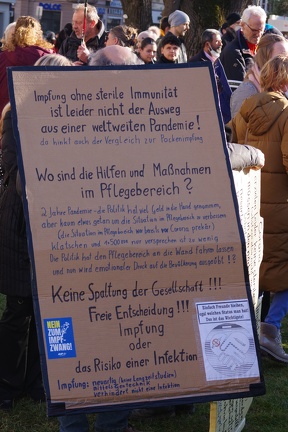 Impfung ohne sterile Immunität
ist leider nicht der Ausweg
aus einer weltweiten Pandemie!
da hinkt auch der Vergleich zur Pockenimpfung
Wo sind die Hilfen und Maßnahmen
im Pflegebereich?
2 Jahre Pandemie - die Politik hat viel Geld in die Hand genommen,
aber kaum etwas getan um die Situation im Pflegebereich zu verbessern
(die Situation im Pflegebereich war bereits vor Corona prekär)
klatschen und 4x500 nur versprechen ist zu wenig
Die Politik hat den Pflegebereich an die Wand fahren lassen
und nun wird emotionaler Druck auf die Bevölkerung ausgeübt!?
Keine Spaltung der Gesellschaft!!!
Freie Entscheidung!!!
Impfung
oder
das Risiko einer Infektion
Impfung: neuartig (keine Langzeitstudien)
verhindert nicht eine Infektion
NEIN
ZUM
IMPF-
ZWANG!
Einfach Freunde bleiben,
egal welchen Status man hat!
Das ist das Wichtigste!